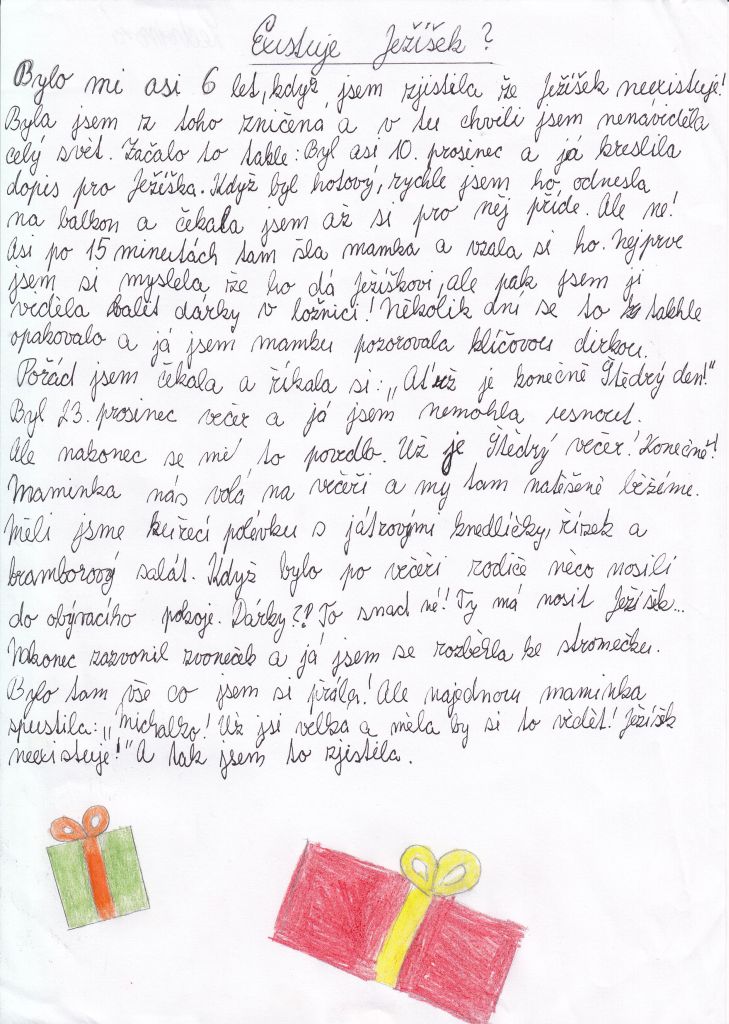 Existuje Ježíšek?
Bylo mi asi 6 let, když jsem zjistila že Ježíšek neexistuje!
Byla jsem z toho zničená a v tu chvíli jsem nenáviděla
celý svět. Začalo to takle: Byl asi 10. prosinec a já kreslila
dopis pro Ježíška. Když byl hotový, rychle jsem ho odnesla
na balkon a čekala jsem až si pro něj příde. Ale ne!
Asi po 15 minutách tam šla mamka a vzala si ho. Nejprve
jsem si myslela že ho dá Ježíškovi, ale pak jsem ji
viděla balit dárky v ložnici! Několik dní se to takhle
opakovalo a já jsem mamku pozorovala klíčovou dirkou.
Pořád jsem čekala a říkala si: „Ať už je konečně Štědrý den!"
Byl 23. prosinec večer a já jsem nemohla usnout.
Ale nakonec se mě to povedlo. Už je Štědrý večer! Konečně!
Maminka nás volá na večeři a my tam natěšeně běžíme.
Měli jsme kuřecí polévku s játrovými knedlíčky, řízek a
bramborový salát. Když bylo po večeři rodiče něco nosili
do obývacího pokoje. Dárky?? To snad né! Ty má nosit Ježíšek...
Nakonec zazvonil zvoneček a já jsem se rozběhla ke stromečku.
Bylo tam vše co jsem si přála! Ale najednou maminka
spustila: „Michalko! Už jsi velká a měla by si to vědět! Ježíšek
neexistuje!" A tak jsem to zjistila.